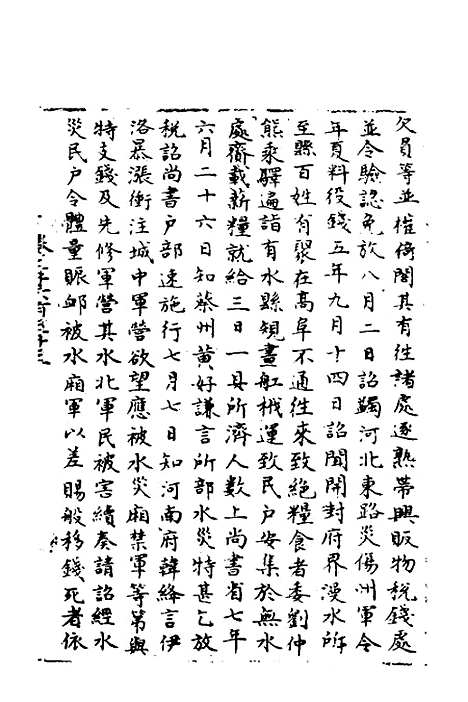 欠員等並權倚閣其有往諸處逐熟帶興販物稅錢處
並令驗認免放八月二日詔蠲河北東路災傷州軍今
年夏料役錢五年九月十四日詔聞開封府界漫水所
至縣百姓有聚在高阜不通往來致絕糧食者委劉仲
熊乘驛遍詣有水縣規畫舡栰運致民戶安集於無水
處齎載薪糧就給三日一具所濟人數上尚書省七年
六月二十六日知蔡州黃好謙言所部水災特甚乞放
稅詔尚書戶部速施行七月七日知河南府韓絳言伊
洛暴漲衝注城中軍營欲望應被水災廂禁軍等第與
特支錢及先修軍營其水北軍民被害續奏請詔經水
災民戶令體量賑卹被水廂軍以差賜般移錢死者依